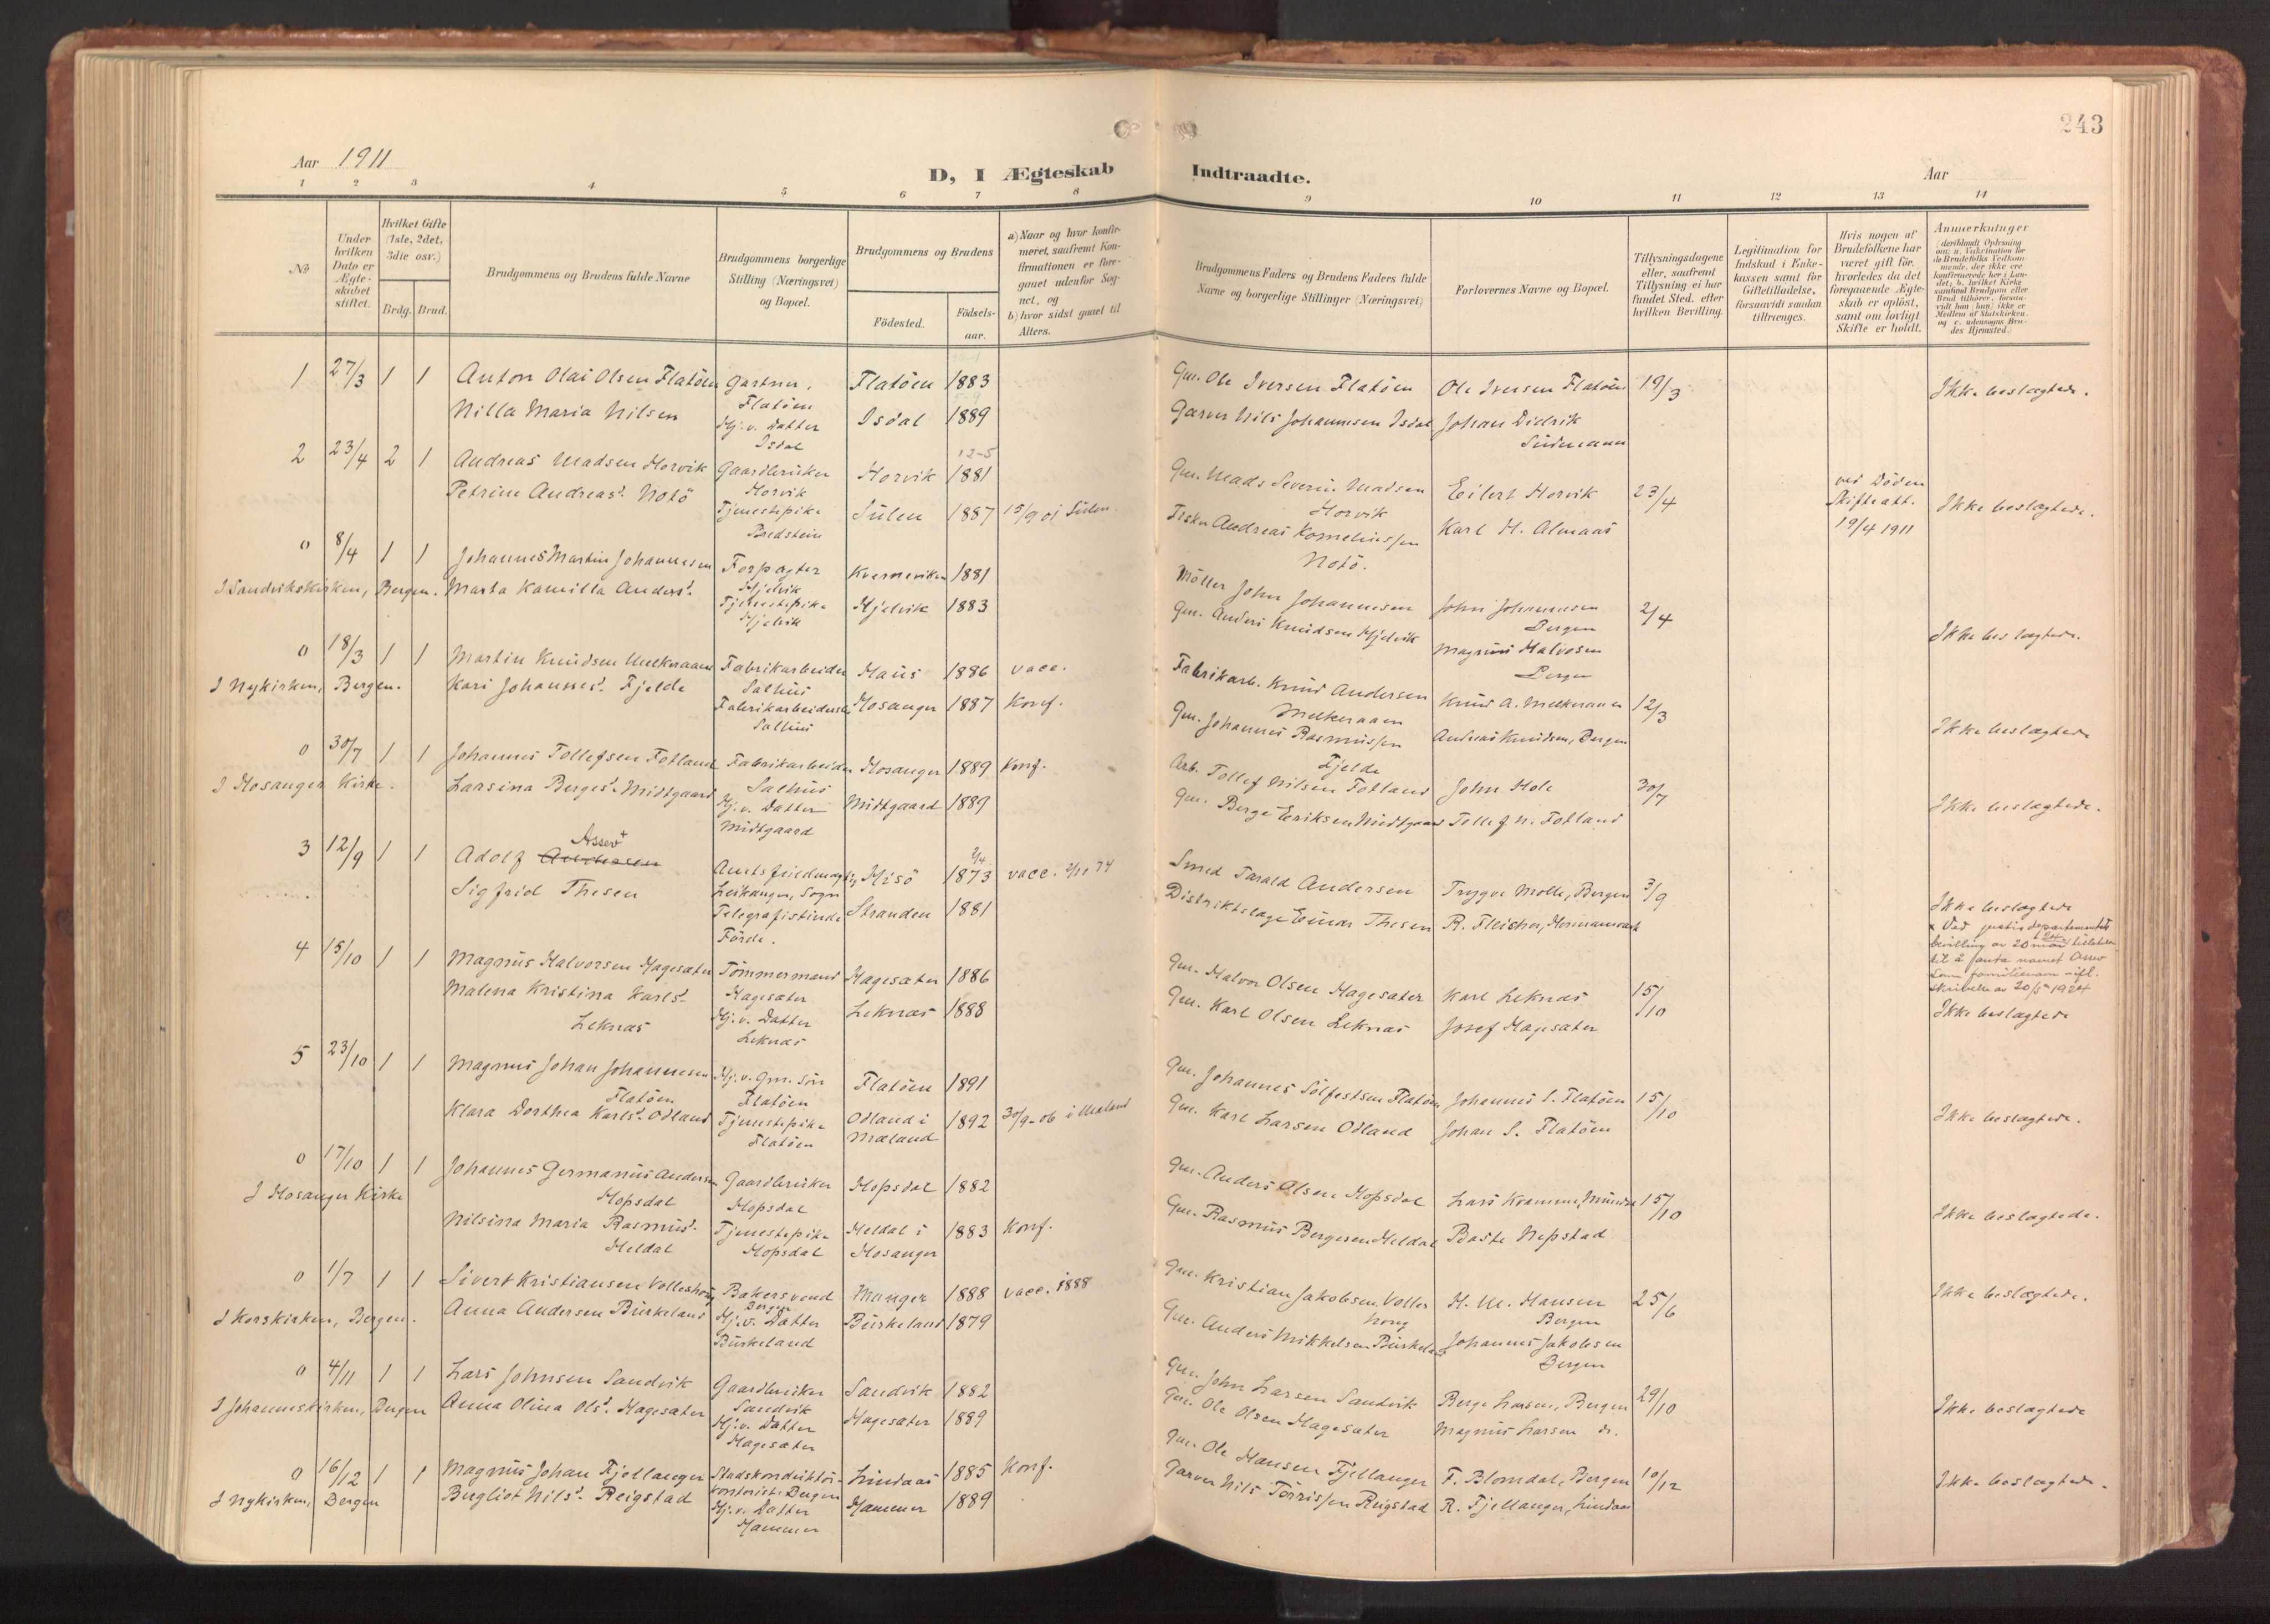 243
Aar 1911
D, I Ægteskab Indtraadte.
Aar
1 2 3 4 5 6 7 8 9 10 11 12 13 14
No
Under hvilken Dato er Ægteskabet stiftet.
Hvilket Gifte (1ste, 2det, 3die osv.)
Brdg. Brud.
Brudgommens og Brudens fulde Navne
Brudgommens borgerlige Stilling (Næringsvei) og Bopæl.
Brudgommens og Brudens
Fødested.
Fødselsaar.
a) Naar og hvor konfirmeret, saafremt Konfirmationen er foregaaet udenfor Sognet, og
b) hvor sidst gaaet til Alters.
Brudgommens Faders og Brudens Faders fulde Navne og borgerlige Stillinger (Næringsvei)
Forlovernes Navne og Bopæl.
Tillysningsdagene eller, saafremt Tillysning ei har fundet Sted, efter hvilken Bevilling.
Legitimation for Indskud i Enkekassen samt for Giftetilladelse, forsaavidt saadan tiltrænges.
Hvis nogen af Brudefolkene har været gift før, hvorledes da det foregaaende Ægteskab er opløst, samt om lovligt Skifte er holdt.
Anmerkninger
1 27/3 1 1 Anton Olai Olsen Flatöen Gartner. Flatöen Flatöen 1883 Gm. Ole Iversen Flatöen Ole Iversen Flatöen 19/3 Ikke beslægtede.
Nilla Maria Nilsen Hj.v. Datter Isdal Isdal 1889 Garver Nils Johannesen Isdal Johan Didrik Sudmann
2 23/4 2 1 Andreas Madsen Horvik Gaardbruker Horvik Horvik 12-5 1881 Gm. Mads Severin Madsen Horvik Eilert Horvik 23/4 ved Döden Skifteatt. 19/4 1911 Ikke beslægtede.
Petrine Andreasd. Notö Tjenestepike Bredstein Sulen 1887 Sulen. Fisker Andreas Korneliussen Notö. Karl H. Almaas
0 8/4 1 1 Johannes Martin Johannesen Forpagter Hjelvik Kverneviken 1881 Möller John Johannesen John Johannesen Bergen 2/4 Ikke beslægtede.
I Sandvikskirken, Bergen. Marta Kamilla Andersd. Tjenestepike Hjelvik Hjelvik 1883 Gm. Anders Knudsen Hjelvik Magnus Halvosen Bergen
0 18/3 1 1 Martin Knudsen Melkeraaen Fabrikarbeider Salhus Haus 1886 vacc. Fabrikarb. Knud Andersen Melkeraaen Knud A. Melkeraaen 12/3 Ikke beslægtede
I Nykirken, Bergen. Kari Johannesd. Fjelde Fabrikarbeiderske Salhus Hosanger 1887 Konf. Gm. Johannes Rasmussen Fjelde Andreas Knudsen, Bergen
0 30/7 1 1 Johannes Tollefsen Fotland Fabrikarbeider Salhus Hosanger 1889 Konf. Arb. Tollef Nilsen Fotland John Hole 30/7 Ikke beslægtede.
I Hosanger Kirke. Larsina Bergesd. Midtgaard Hj.v. Datter Midtgaard Midtgaard 1889 Gm. Berge Eriksen Midtgaard Tollef N. Fotland
3 12/9 1 1 Adolf Assev Leikanger, Sogn Misö 2/4 1873 vacc. Smed Tarald Andersen Trygve Molle, Bergen 3/9 Ikke beslægtede
Sigfrid Thesen Telegrafistinde Förde. Stranden 1881 Distriktslæge Einar Thesen R. Fleischer, Hermansverk
Ved justisdepartementets
bevilling av 20 mai 24 tillatelse
til å anta navnet Assev
som familienavn ifl.
skrivelse av 20/5 1924
4 15/10 1 1 Magnus Halvorsen Hagesæter Tömmermand Hagesæter Hagesæter 1886 Gm. Halvor Olsen Hagesæter Karl Leknæs 15/10 Ikke beslægtede
Malena Kristina Karlsd. Leknæs Hj.v. Datter Leknæs Leknæs 1888 Gm. Karl Olsen Leknæs Josef Hagesæter
5 23/10 1 1 Magnus Johan Johannesen Flatöen Hj.v. Gm. Sön Flatöen Flatöen 1891 Gm. Johannes Sölfestsen Flatöen Johannes S. Flatöen 15/10 Ikke beslægtede.
Klara Dorthea Karlsd. Odland Tjenestepike Flatöen Odland i Mæland 1892 30/9-06 i Mæland Gm. Karl Larsen Odland Johan S. Flatöen
0 17/10 1 1 Johannes Germanus Andersen Hopsdal Gaardbruker Hopsdal Hopsdal 1882 Gm. Anders Olsen Hopsdal Lars Kvamme, 15/10 Ikke beslægtede.
I Hosanger Kirke Nilsina Maria Rasmusd. Heldal Tjenestepike Hopsdal Heldal i Hosanger 1883 Konf. Gm. Rasmus Bergesen Heldal Baste Nepstad
0 1/7 1 1 Sivert Kristiansen Volleshoug Bakersvend Bergen Manger 1888 vacc. 1888 Gm. Kristian Jakobsen Volleshoug H. M. Hansen Bergen 25/6 Ikke beslægtede.
I Korskirken, Bergen. Anna Andersen Birkeland Hj.v. Datter Birkeland Birkeland 1879 Gm. Anders Mikkelsen Birkeland Johannes Jakobsen Bergen
0 4/11 1 1 Lars Johnsen Sandvik Gaardbruker Sandvik Sandvik 1882 Gm. John Larsen Sandvik Berge Larsen, Bergen 29/10 Ikke beslægtede
I Johanneskirken, Bergen Anna Olina Olsd. Hagesæter Hj.v. Datter Hagesæter Hagesæter 1889 Gm. Ole Olsen Hagesæter Magnus Larsen do.
0 16/12 1 1 Magnus Johan Fjellanger Stadskonduktör- kontorist. Bergen Lindaas 1885 Konf. Gm. Ole Hansen Fjellanger F. Blomdal, Bergen 10/12 Ikke beslægtede.
I Nykirken, Bergen Bergliot Nilsd. Reigstad Hj.v. Datter Hammer Hammer 1889 Garver Nils Torrissen Reigstad R. Fjellanger, Lindaas